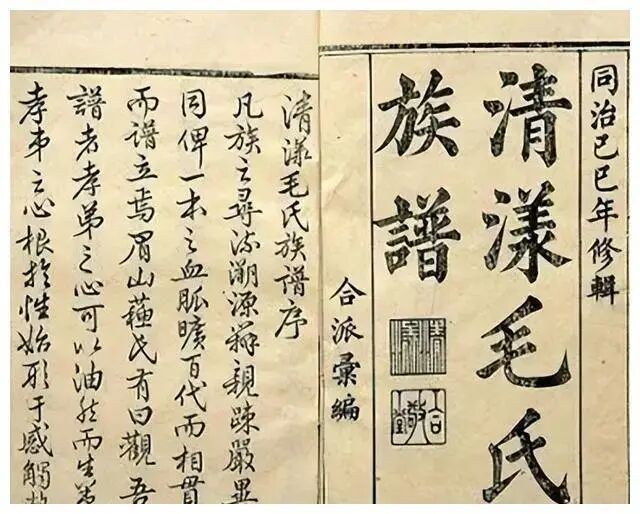 同治己巳年修輯
清漾毛氏
族譜
合派彙編
清漾毛氏族譜序
凡族之尋流溯源辨親疎嚴異
同俾一本之血脈曠百代而相貫
而譜立焉眉山蘇氏有曰觀吾
譜者孝弟之心可以油然而生蓋
孝弟之心根於性始形于感觸